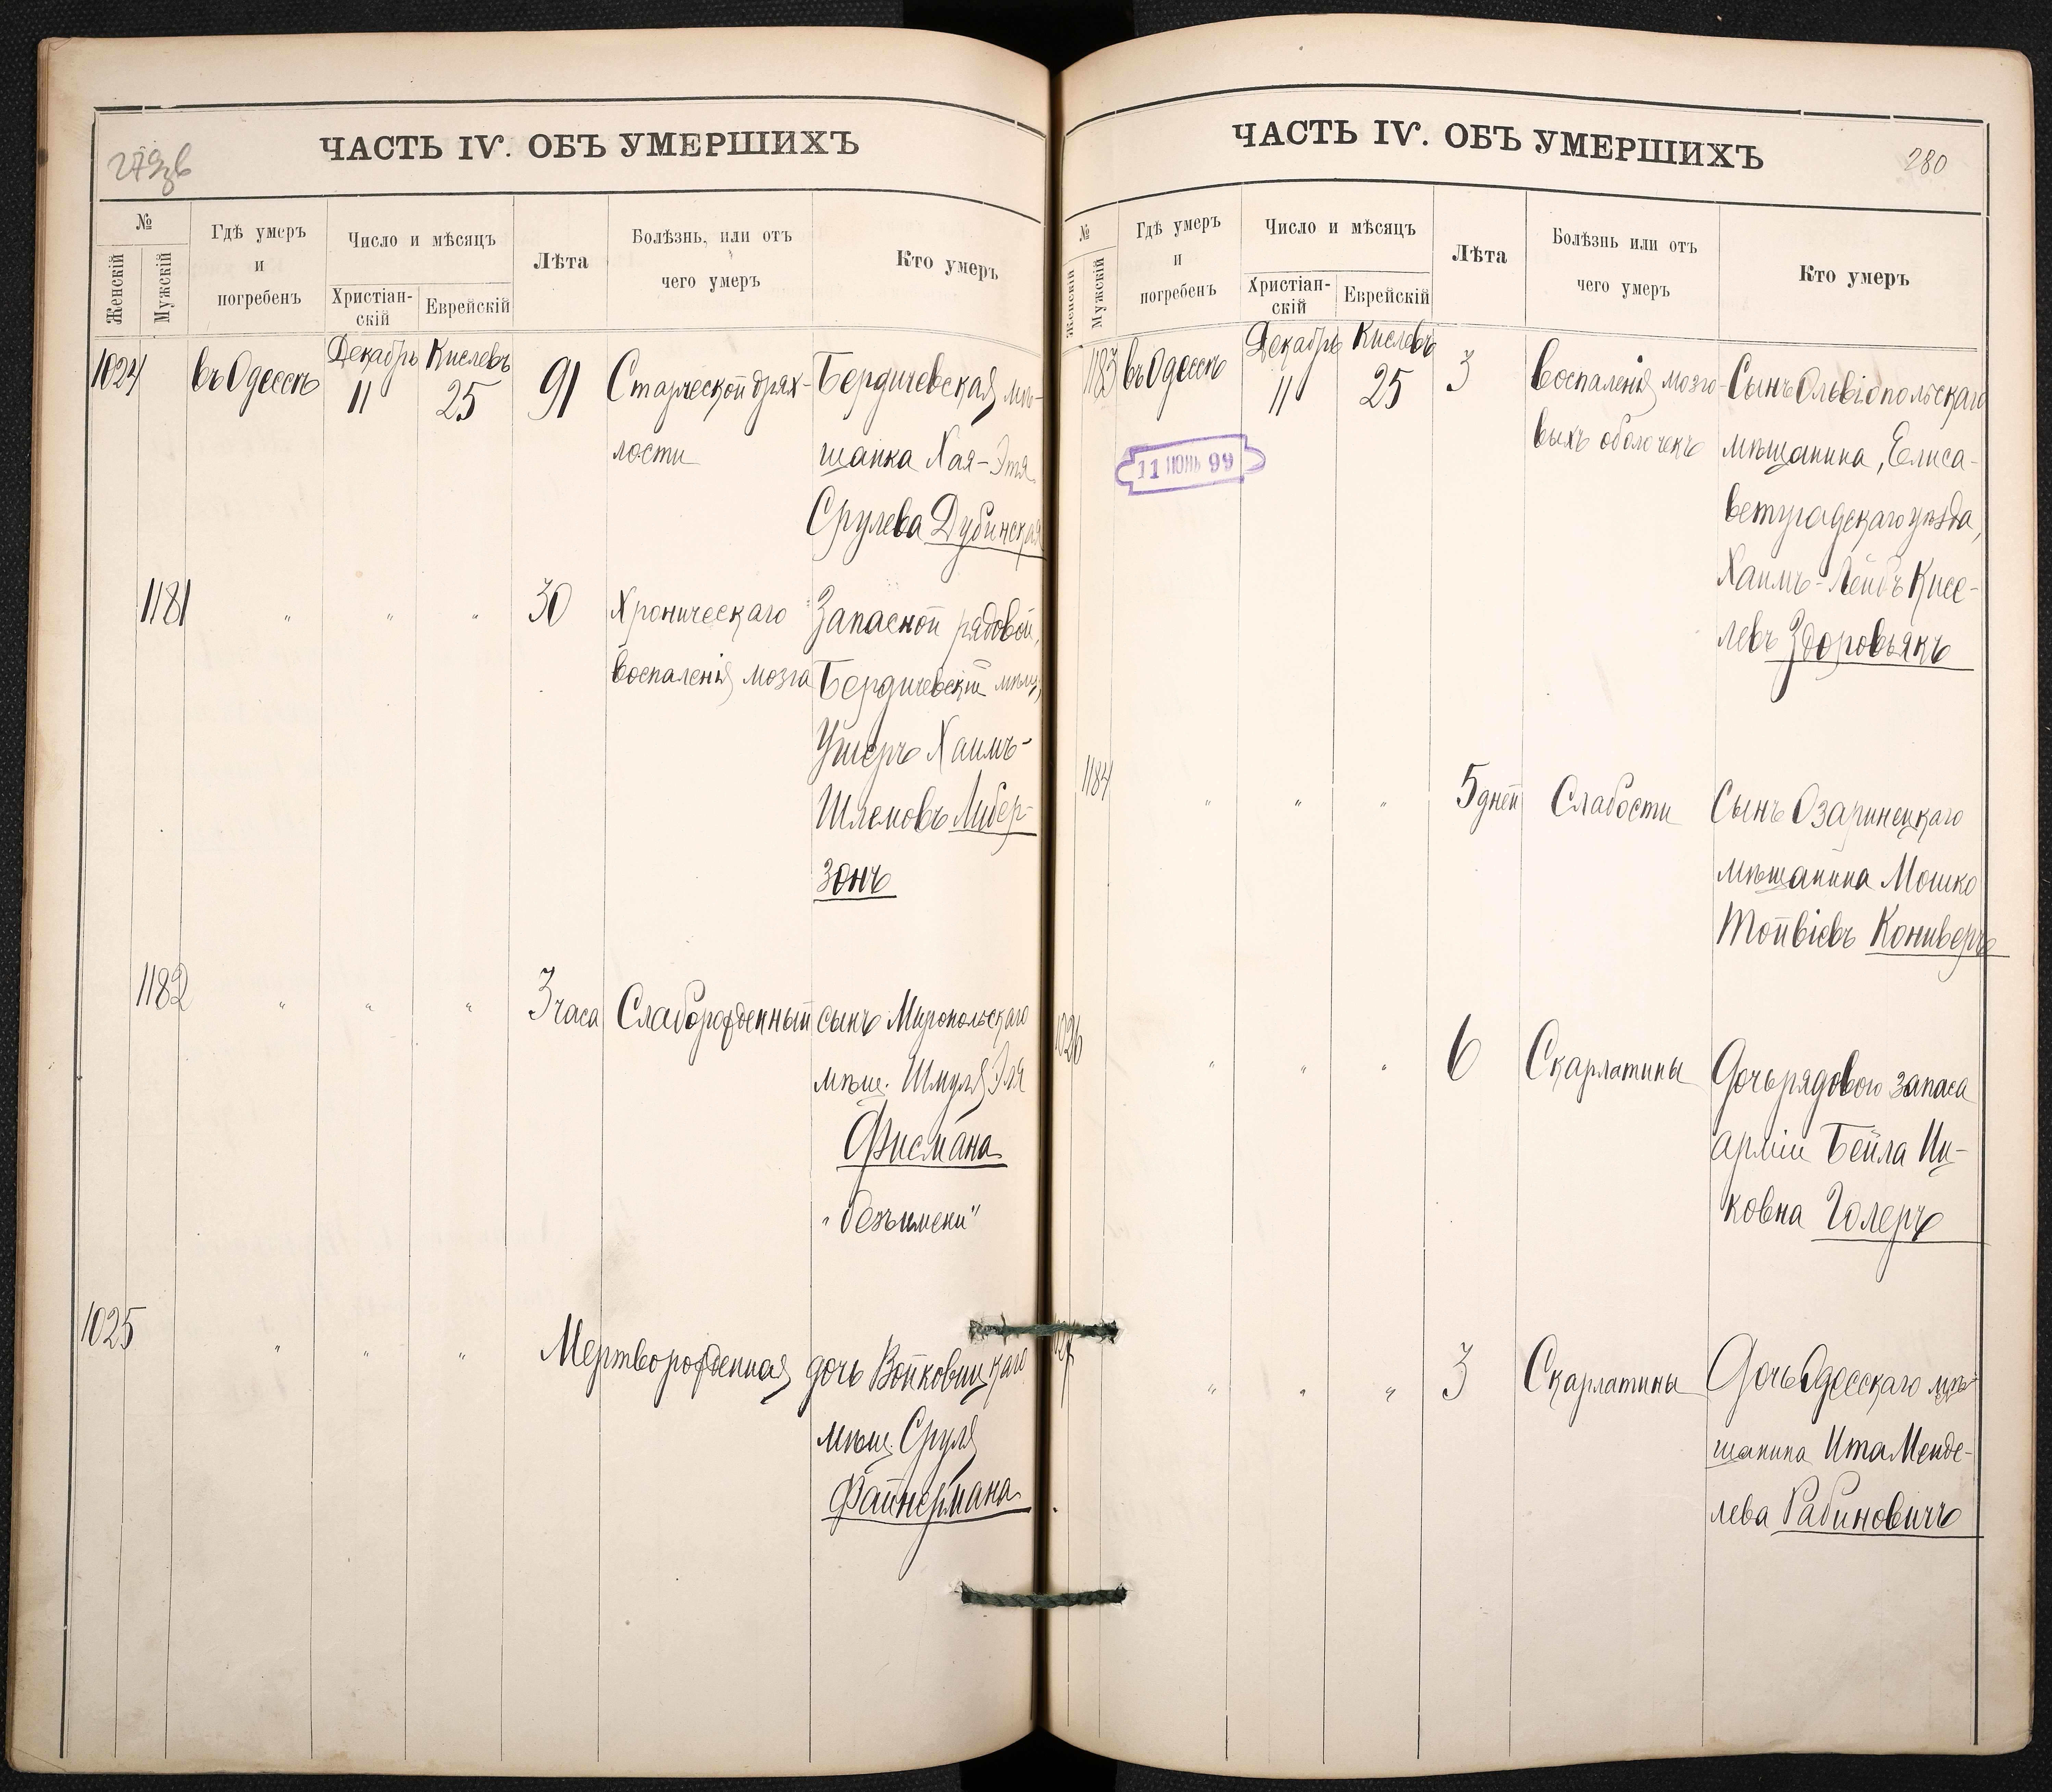 279зв
ЧАСТЬ IV. ОБЪ УМЕРШИХЪ
№
Женскій
Мужскій
Гдѣ умеръ
и
погребенъ
Число и мѣсяцъ
Христіан-
скій
Еврейскій
Лѣта
Болѣзнь, или отъ
чего умеръ
Кто умеръ
1024 въ Одессѣ Декабрь 11 Кислевъ 25 91 Старческой дрях- Бердичевская мѣ-
лости щанка Хая-Этя
Срулева Дубинская
1181 " " " 30 Хроническаго Запасной рядовой,
воспаленія мозга Бердичевскій мѣщ.
Ушеръ Хаимъ-
Шлемовъ Либер-
зонъ
1182 " " " 3 часа Слаборожденный сынъ Миропольскаго
мѣщ. Шмуля Эля
Фисмана
"безъ имени"
1025 " " " Мертворожденная дочь Войковицкаго
мѣщ. Сруля
Файнермана
ЧАСТЬ IV. ОБЪ УМЕРШИХЪ
280
№
Женскій
Мужскій
Гдѣ умеръ
и
погребенъ
Число и мѣсяцъ
Христіан-
скій
Еврейскій
Лѣта
Болѣзнь или отъ
чего умеръ
Кто умеръ
1183 въ Одессѣ Декабрь 11 Кислевъ 25 3 Воспаленія мозго- Сынъ Ольвіопольскаго
выхъ оболочекъ мѣщанина, Елиса-
11 ІЮНЬ 99
ветуградскаго уѣзда,
Хаимъ-Лейбъ Кисе-
левъ Здоровьякъ
1184 " " " 5 дней Слабости Сынъ Озаринецкаго
мѣщанина Мошко
Тойвіевъ Конивер
1026 " " " 6 Скарлатины Дочь рядового запаса
арміи Бейла Иц-
ковна Голеръ
" " " 3 Скарлатины Дочь Одесскаго мѣ-
щанина Ита Менде-
лева Рабиновичъ